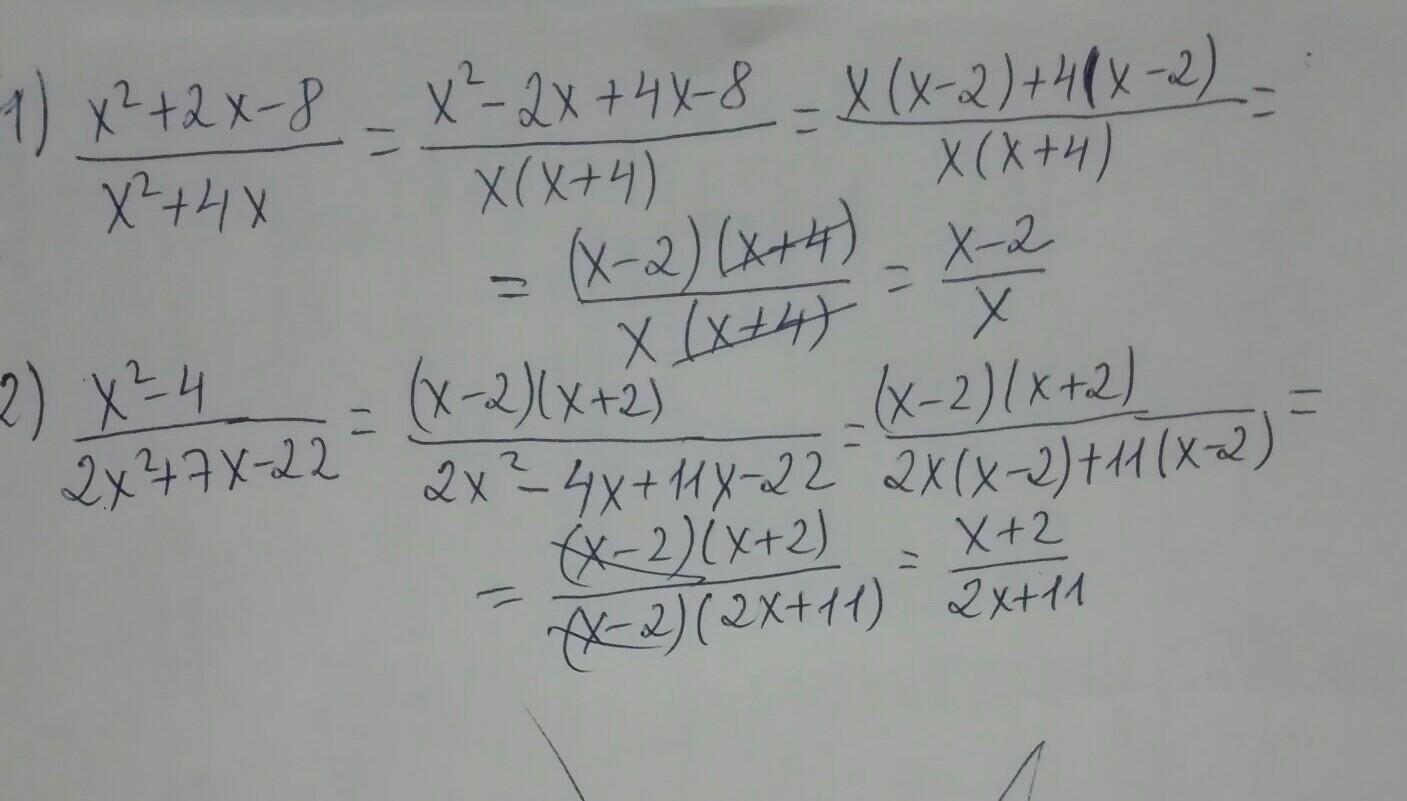 1) (x²+2x-8)/(x²+4x) = (x²-2x+4x-8)/(x(x+4)) = (x(x-2)+4(x-2))/(x(x+4)) =
= ((x-2)(x+4))/(x(x+4)) = (x-2)/x
2) (x²-4)/(2x²+7x-22) = ((x-2)(x+2))/(2x²-4x+11x-22) = ((x-2)(x+2))/(2x(x-2)+11(x-2)) =
= ((x-2)(x+2))/((x-2)(2x+11)) = (x+2)/(2x+11)